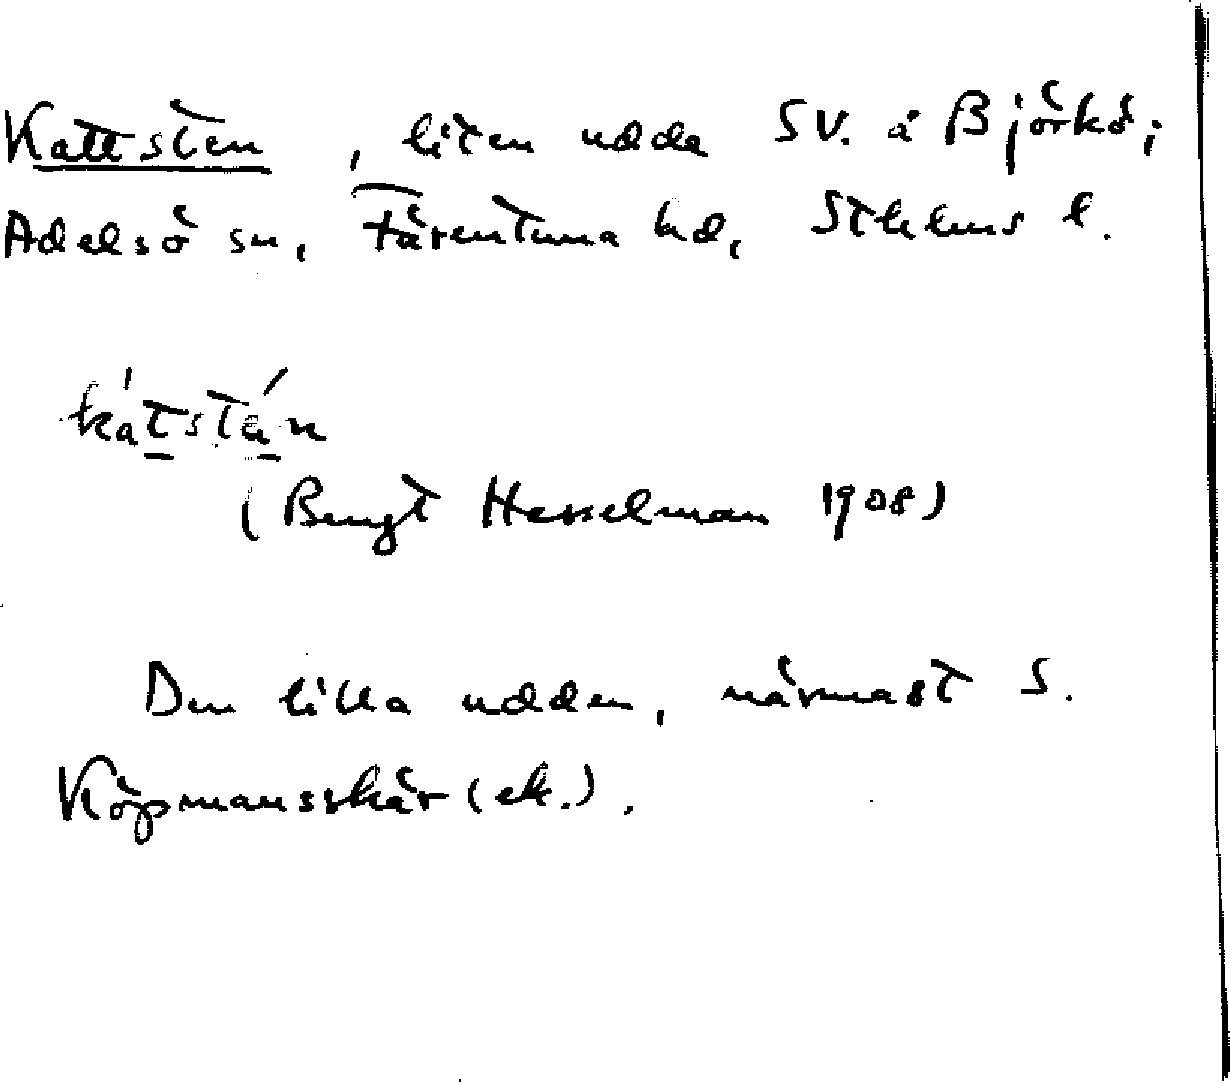 Kattsten, liten udde SV. å Björkö;
Adelsö sn, Färentuna hd, Sthlms l.
kátstán
(Bengt Hesselman 1908)
Den lilla udden, närmast S.
Köpmansskär (ek.).